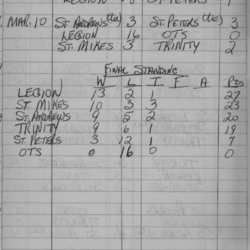 LEGION 8 ST. PETERS 1
MAR. 10 ST. ANDREWS (tie) 3 ST. PETERS (tie) 3
LEGION 16 OTS 0
ST. MIKES 3 TRINITY 2
FINAL STANDING
W L T F A PTS
LEGION 13 2 1 27
ST. MIKES 10 3 3 23
ST. ANDREWS 9 5 2 20
TRINITY 9 6 1 19
ST. PETERS 3 12 1 7
OTS 0 16 0 0